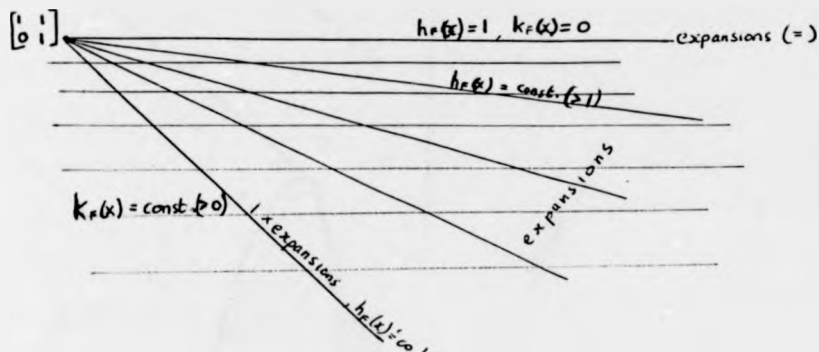 [1 1
0 1]
h_F(x) = 1, k_F(x) = 0
expansions (=)
h_F(x) = const. (>1)
expansions
k_F(x) = const. (>0)
1 x expansions, h_F(x) = ∞